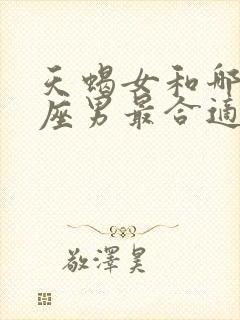 天蝎女和哪
座男最合适
敬澤昊